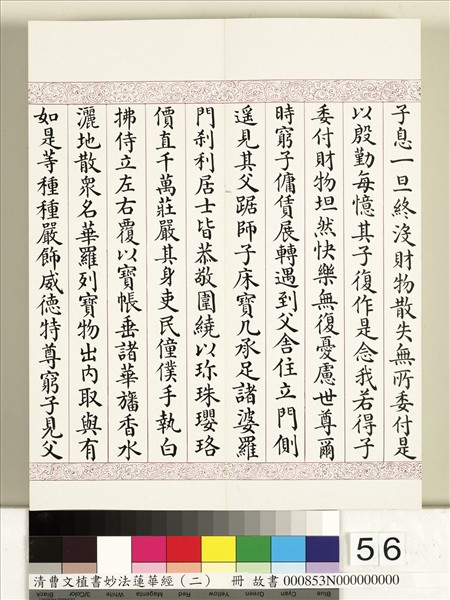 子息一旦終沒財物散失無所委付是
以殷勤每憶其子復作是念我若得子
委付財物坦然快樂無復憂慮世尊爾
時窮子傭賃展轉遇到父舍住立門側
遙見其父踞師子床寶几承足諸婆羅
門刹利居士皆恭敬圍繞以珎珠瓔珞
價直千萬莊嚴其身吏民僮僕手執白
拂侍立左右覆以寶帳垂諸華旛香水
灑地散衆名華羅列寶物出內取與有
如是等種種嚴飾威德特尊窮子見父
56
清曹文植書妙法蓮華經（二） 冊 故書 000853N000000000
Black 3/Color White Magenta Red Yellow Green Cyan Blue